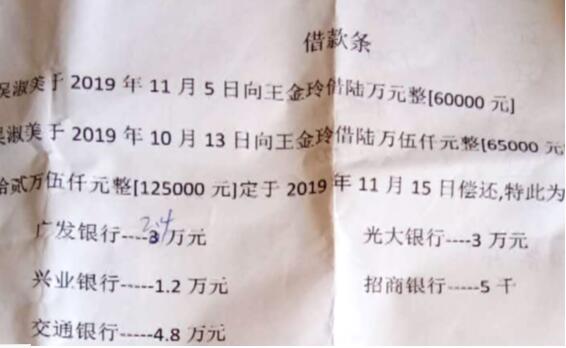 借款条
吴淑美于 2019 年 11 月 5 日向王金玲借陆万元整[60000 元]
吴淑美于 2019 年 10 月 13 日向王金玲借陆万伍仟元整[65000 元
拾贰万伍仟元整[125000 元]定于 2019 年 11 月 15 日偿还,特此为
广发银行----3 2.4 万元 光大银行----3 万元
兴业银行-----1.2 万元 招商银行-----5 千
交通银行-----4.8 万元